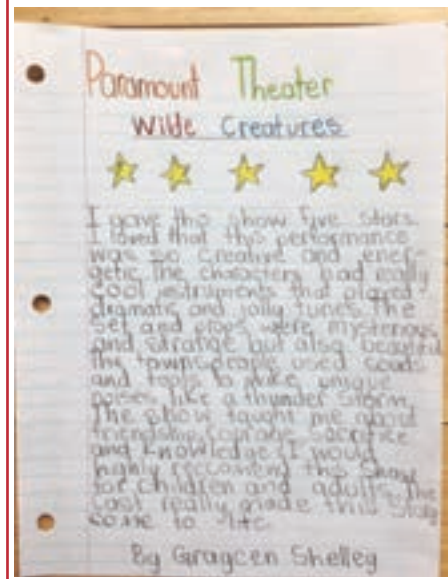 Paramount Theater
Wilde Creatures
I gave this show five stars.
I loved that this performance
was so creative and ener-
getic. The characters had really
cool instruments that played
dramatic and jolly tunes. The
set and props were mysterious
and strange but also beautiful
The townspeople used
and tools to make unique
noises like a thunder storm.
The show taught me about
friendship, courage, sacrifice
and knowledge. I would
highly reccomend this
for children and adults. The
cast really made this story
come to life.
By Graycen Shelley